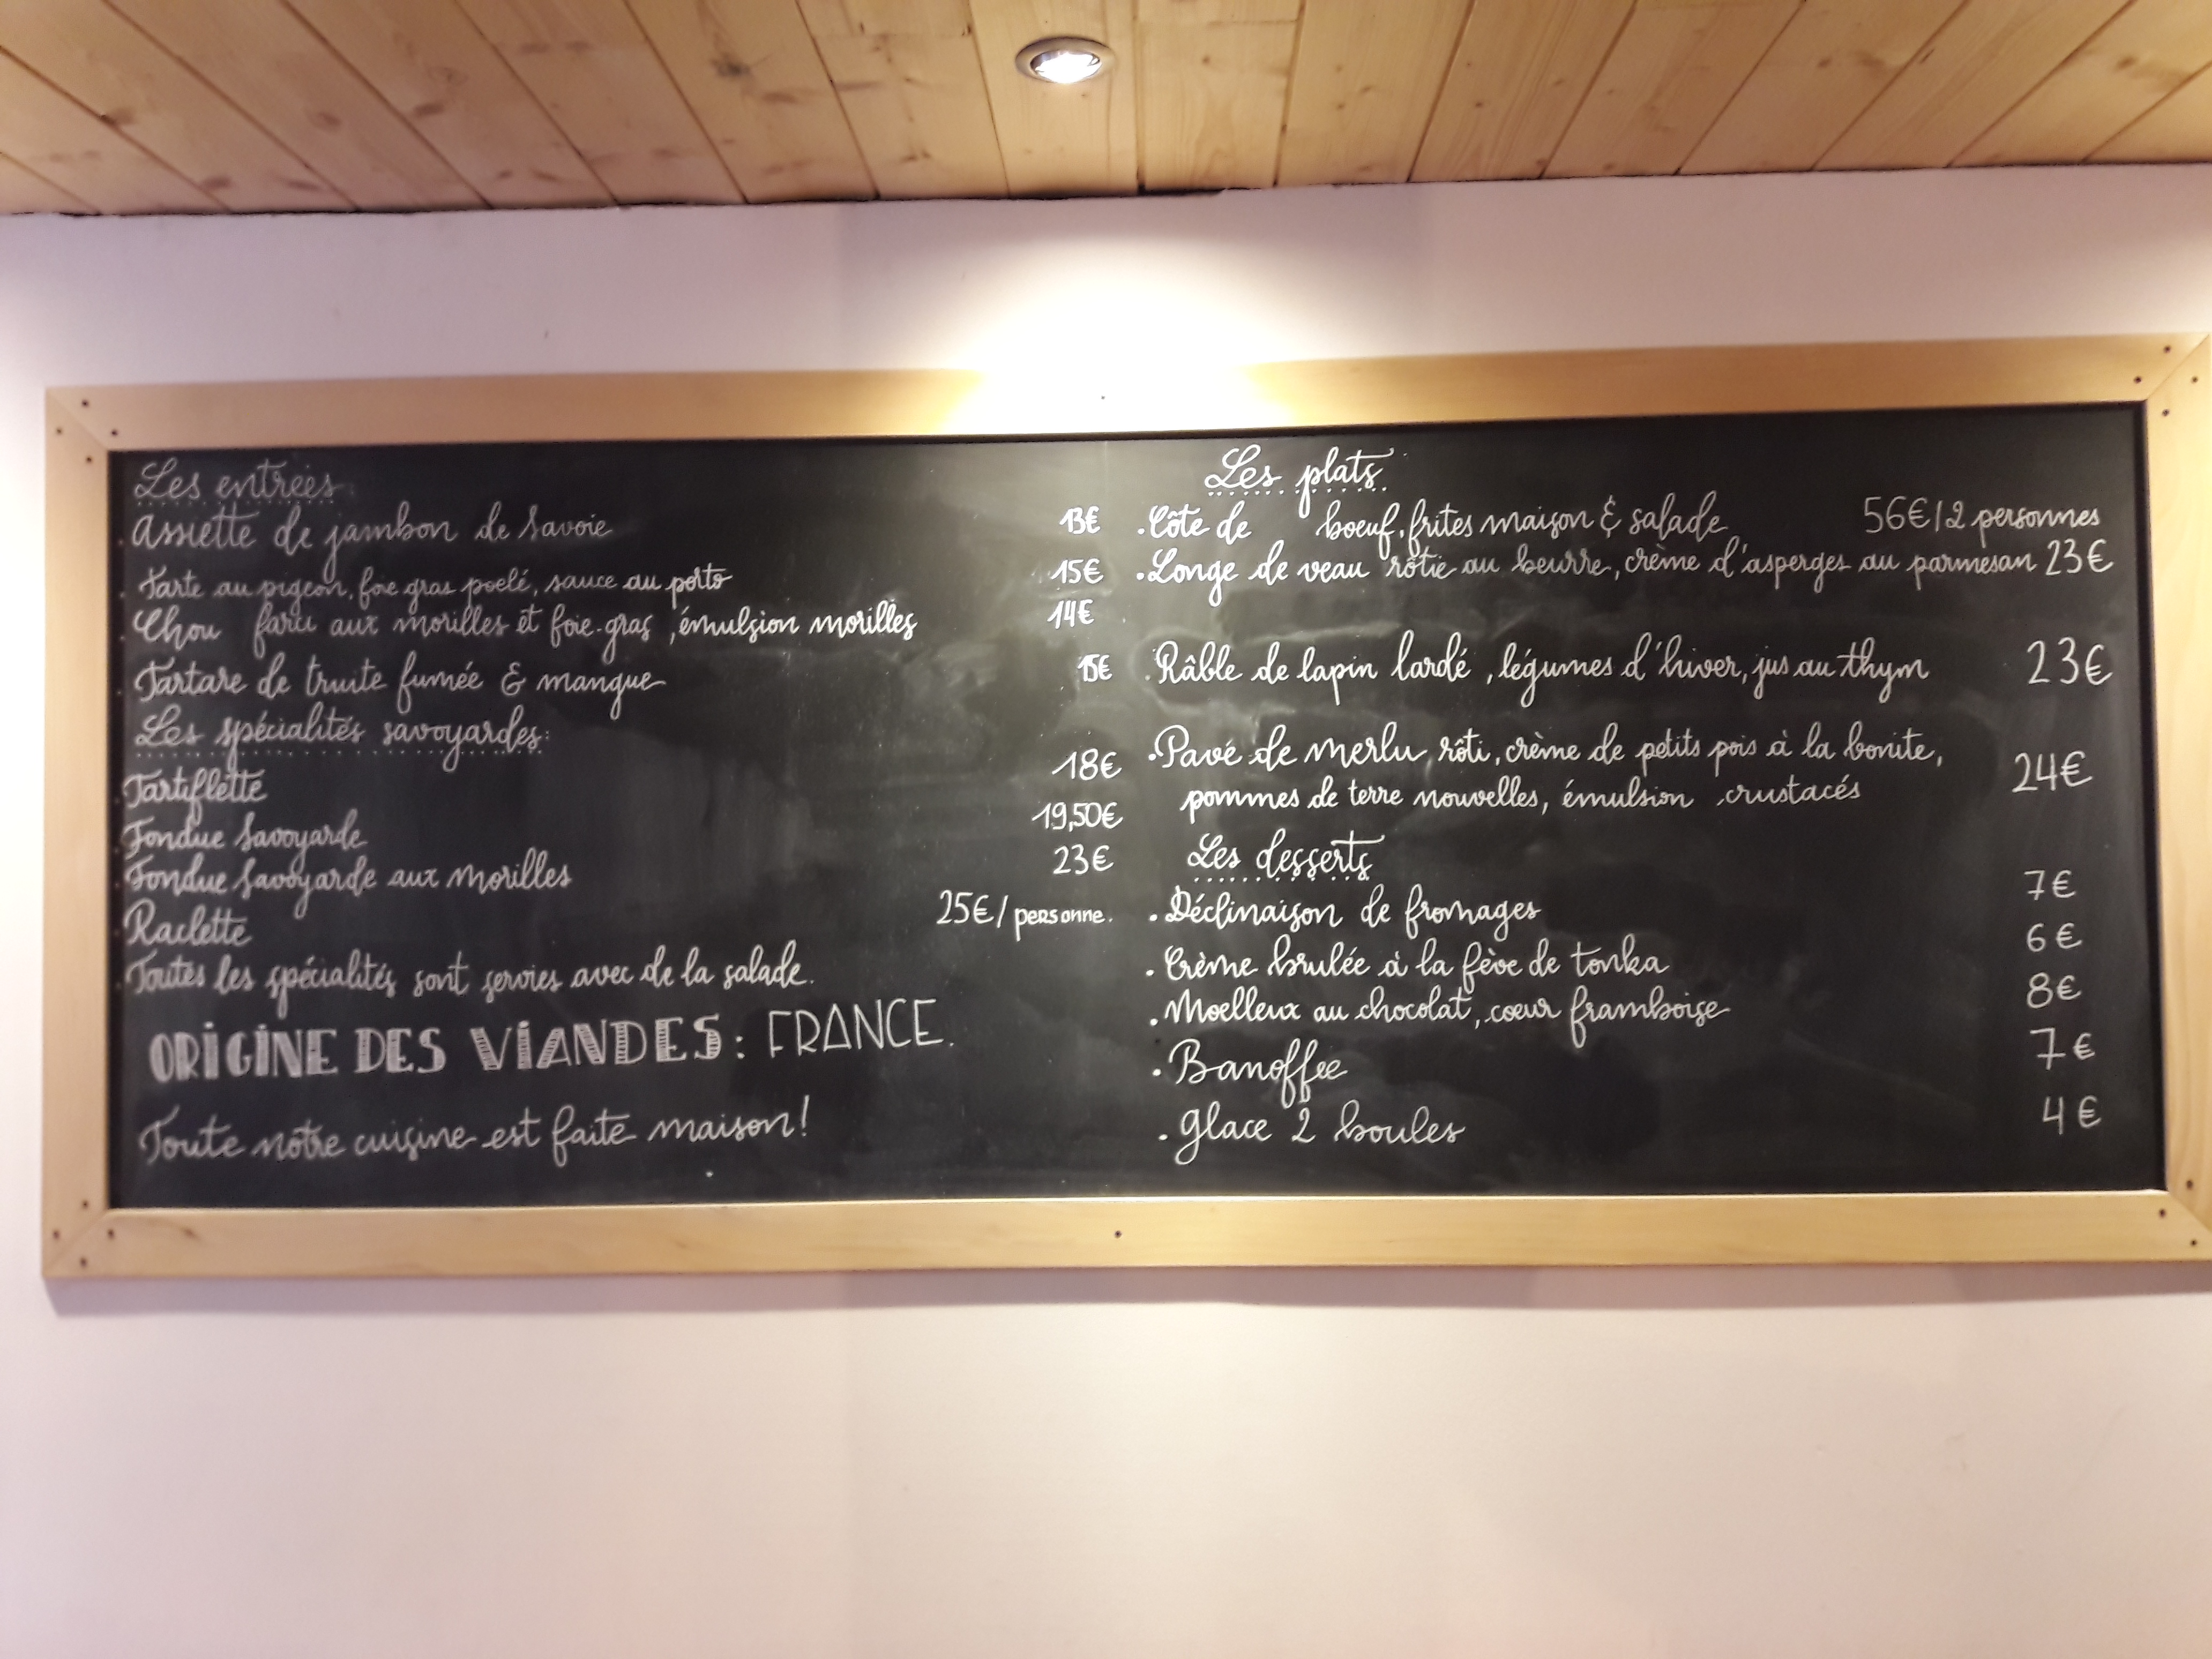 Les entrées
. Assiette de jambon de Savoie 13€
. Tarte au pigeon, foie gras poelé, sauce au porto 15€
. Chou farci aux morilles et foie-gras, émulsion morilles 14€
. Tartare de truite fumée & mangue 15€
Les spécialités savoyardes:
. Tartiflette 18€
. Fondue Savoyarde 19,50€
. Fondue Savoyarde aux morilles 23€
. Raclette 25€/personne.
. Toutes les spécialités sont servies avec de la salade.
ORIGINE DES VIANDES: FRANCE.
Toute notre cuisine est faite maison!
Les plats
. Côte de boeuf, frites maison & salade 56€/2 personnes
. Longe de veau rôtie au beurre, crème d'asperges au parmesan 23€
. Râble de lapin lardé, légumes d'hiver, jus au thym 23€
. Pavé de merlu rôti, crème de petits pois à la bonite,
pommes de terre nouvelles, émulsion crustacés 24€
Les desserts
. Déclinaison de fromages 7€
. Crème brulée à la fève de tonka 6€
. Moelleux au chocolat, coeur framboise 8€
. Banoffee 7€
. Glace 2 boules 4€